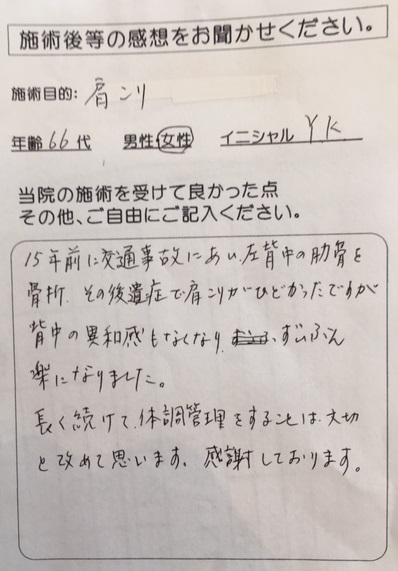 施術後等の感想をお聞かせください。
施術目的: 肩こり
年齢66代 男性・女性 イニシャル Y.K
当院の施術を受けて良かった点
その他、ご自由にご記入ください。
15年前に交通事故にあい、左背中の肋骨を
骨折、その後遺症で肩こりがひどかったですが
背中の異和感もなくなり、ずいぶん
楽になりました。
長く続けて、体調管理をすることは、大切
と改めて思います。感謝しております。